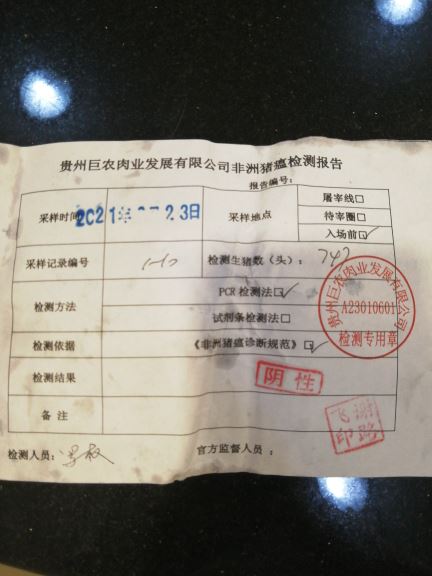 贵州巨农肉业发展有限公司非洲猪瘟检测报告
报告编号：
采样时间 2021年 23日 采样地点 屠宰线□
待宰圈□
入场前☑
采样记录编号 检测生猪数（头）：
检测方法 PCR检测法☑
试剂条检测法□
检测依据 《非洲猪瘟诊断规范》☑
检测结果 阴性
备注
检测人员： 官方监督人员：
贵州巨农肉业发展有限公司
A23010601
检测专用章
谢路飞印